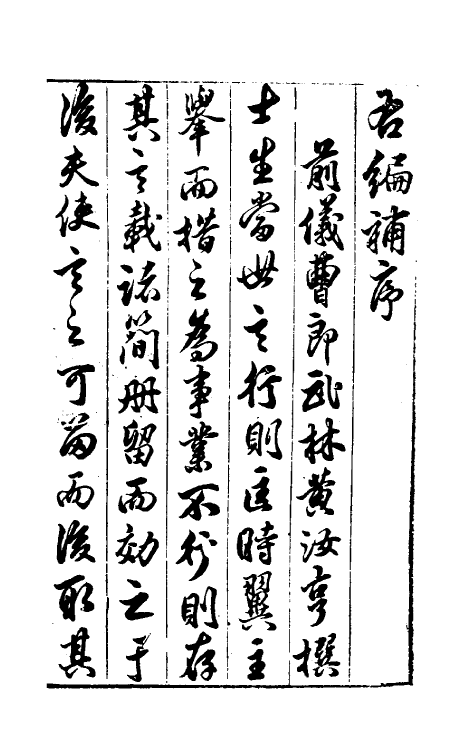 吾編補序
前儀曹郎武林黃汝亨撰
士生當世言行則匡時翼主
舉而措之為事業不行則存
其言載諸簡冊留而効之于
後夫使言之可留而後取其